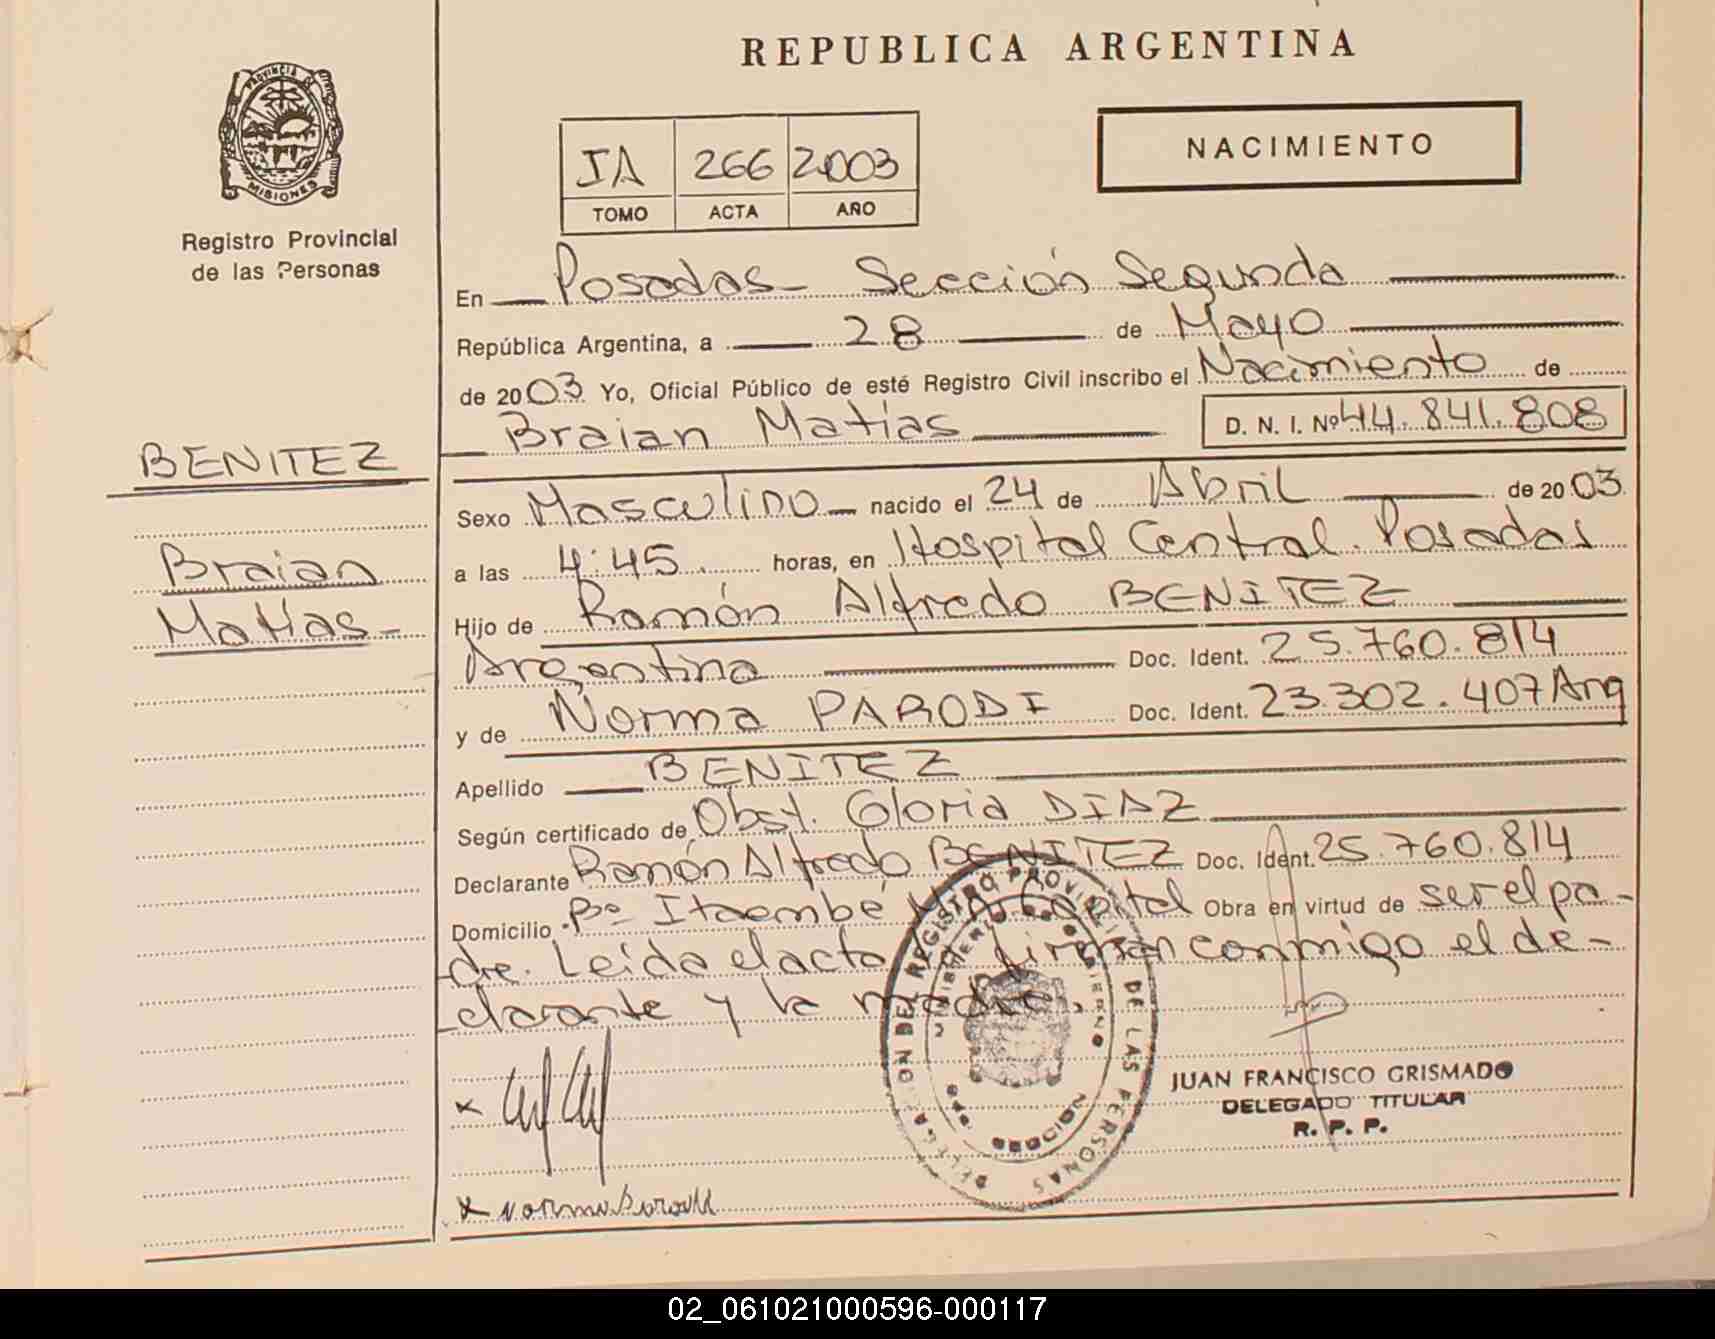 REPUBLICA ARGENTINA
PROVINCIA DE
MISIONES
Registro Provincial
de las Personas
NACIMIENTO
IA 266 2003
TOMO ACTA AÑO
En Posadas - Sección Segunda
República Argentina, a 28 de Mayo
de 2003 Yo, Oficial Público de esté Registro Civil inscribo el Nacimiento de
Braian Matías D. N. I. Nº 44.841.808
BENITEZ
Braian
Matias-
Sexo Masculino nacido el 24 de Abril de 2003
a las 4:45. horas, en Hospital Central. Posadas
Hijo de Ramón Alfredo BENITEZ
Argentina Doc. Ident. 25.760.814
y de Norma PARODI Doc. Ident. 23.302.407 Arg
Apellido BENITEZ
Según certificado de Obst. Gloria DIAZ
Declarante Ramón Alfredo BENITEZ Doc. Ident. 25.760.814
Domicilio Bº Itaembé Miní Capital Obra en virtud de ser el pa-
dre. Leida el acta firman conmigo el de-
clarante y la madre.
DELEGACION DEL REGISTRO PROVINCIAL DE LAS PERSONAS
MINISTERIO DE GOBIERNO
2da. SECCION
JUAN FRANCISCO GRISMADO
DELEGADO TITULAR
R. P. P.
x
x Norma Parodi
02_061021000596-000117